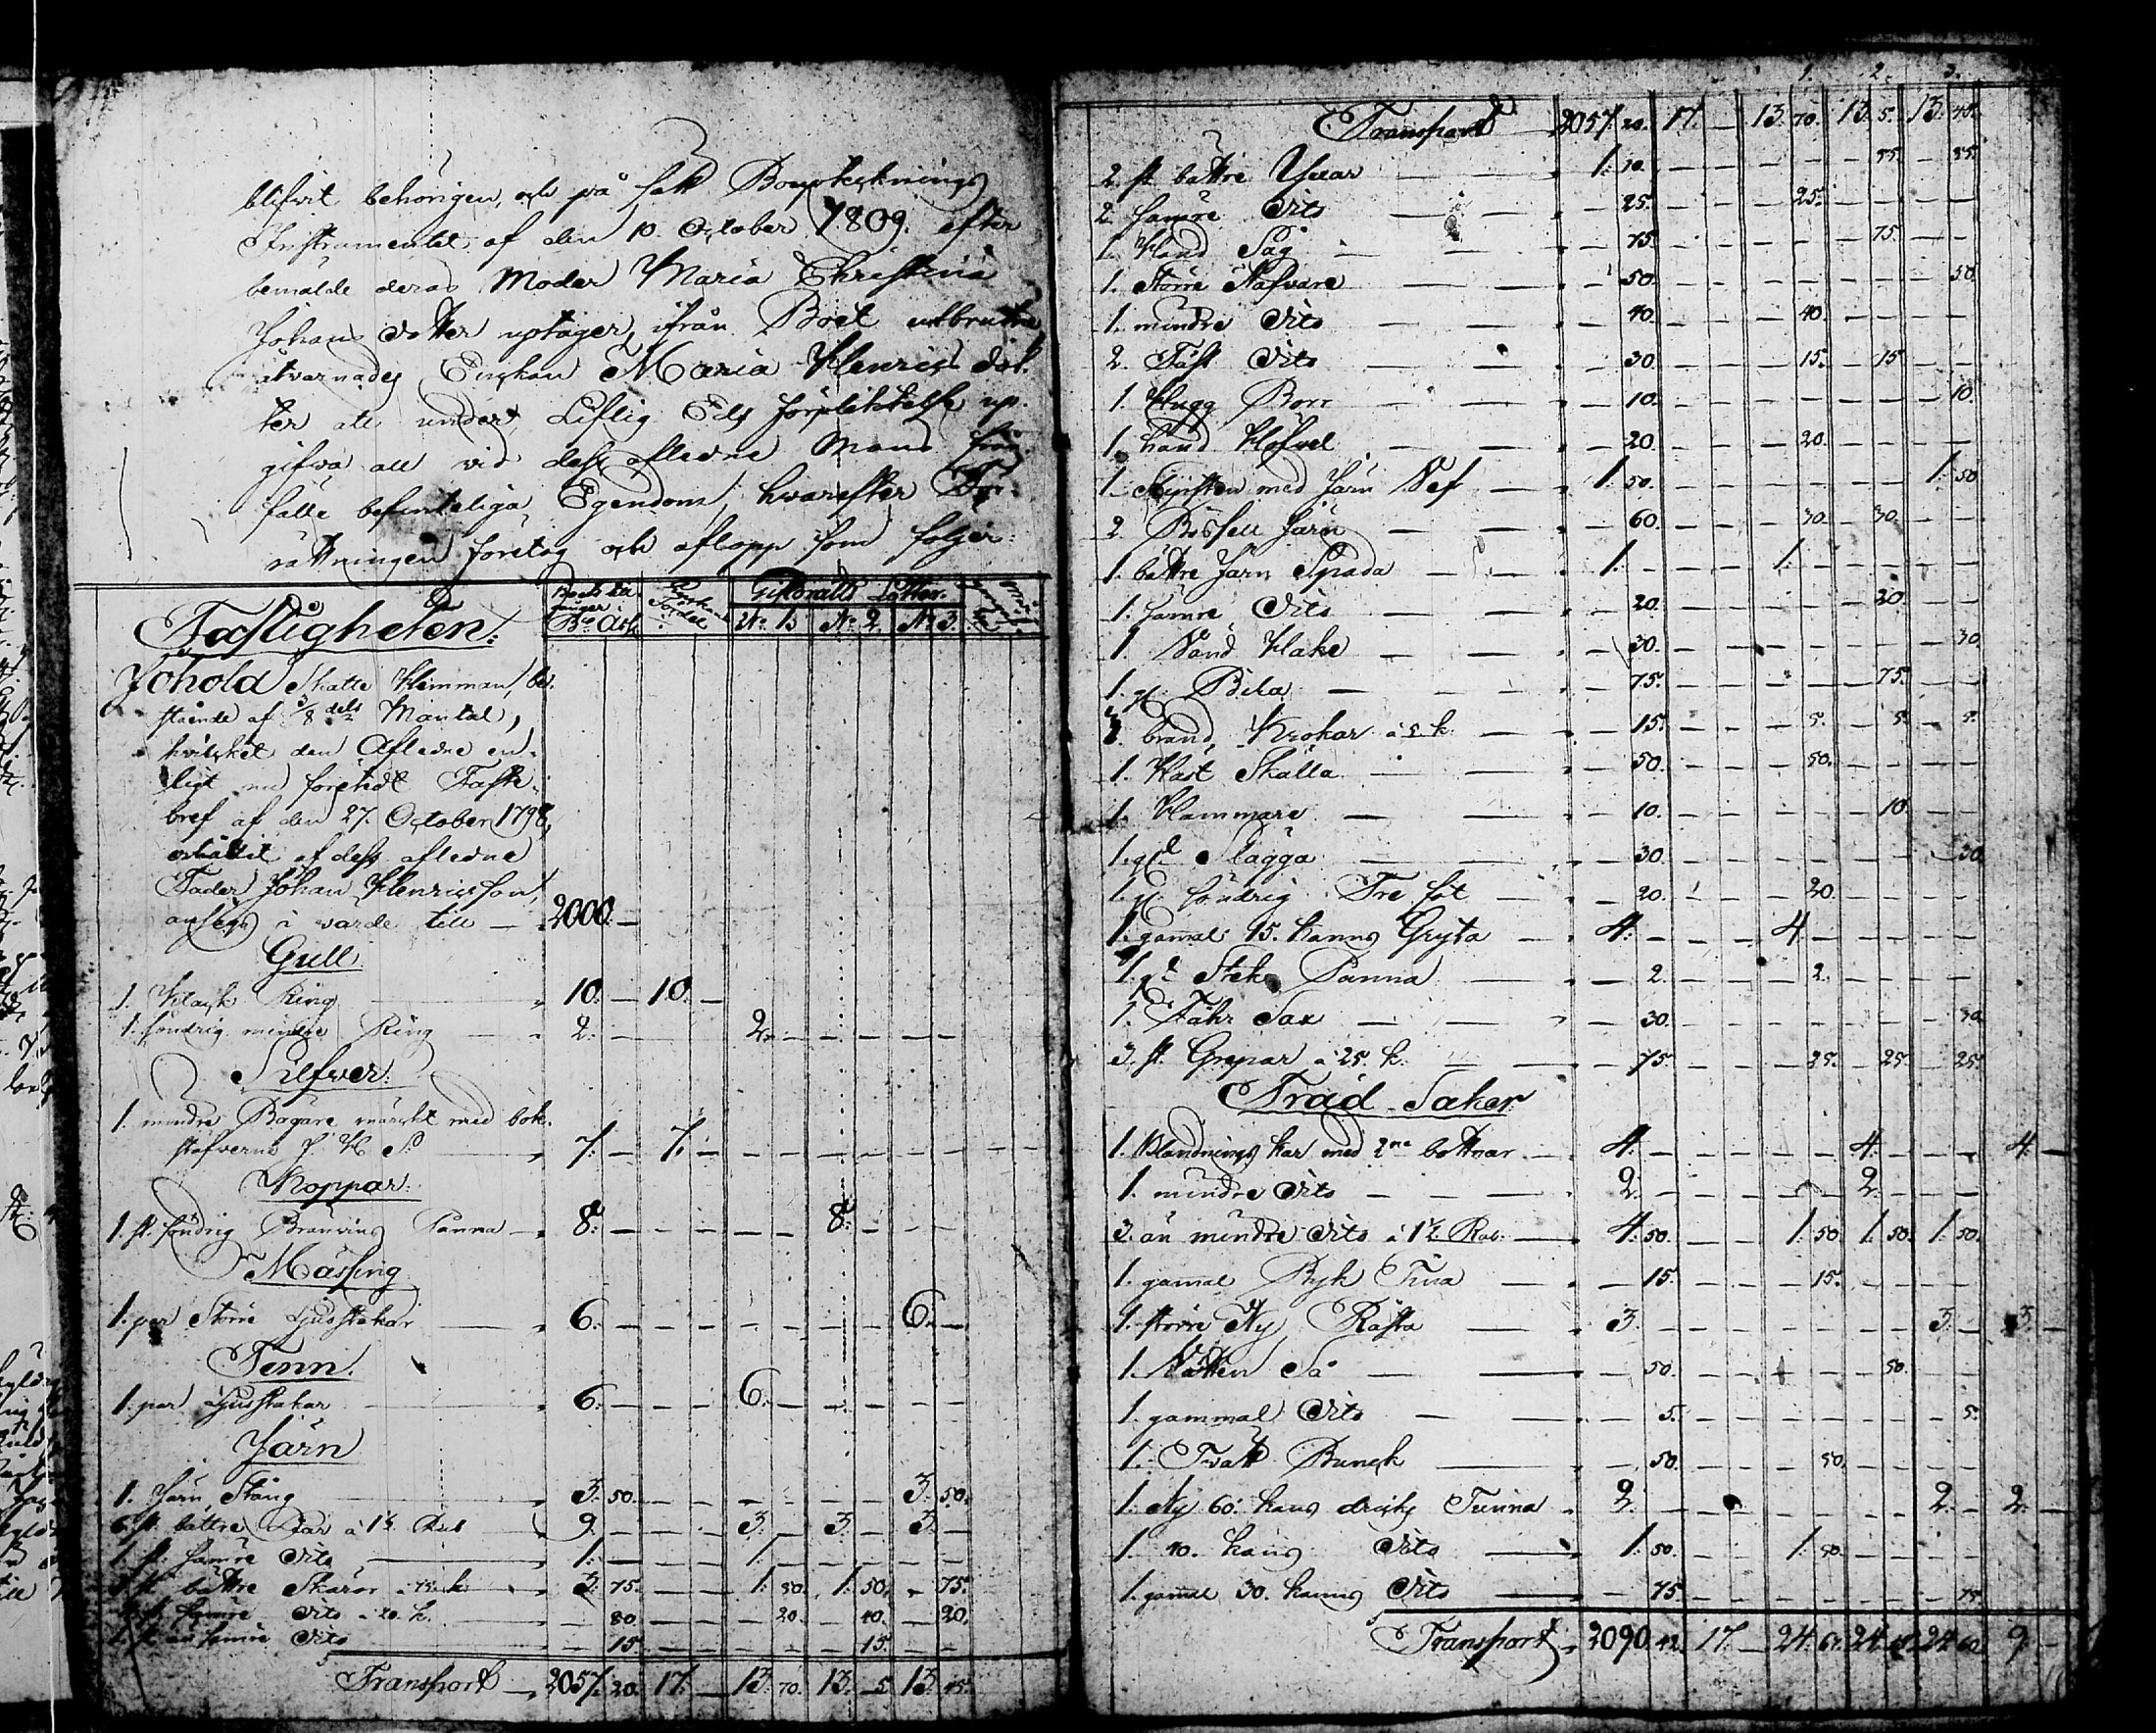 blifvit behörigen, och på satt Bouptecknings
Instrumentet af den 10. October 1809. efter
bemälde deras Moder Maria Christina
Johans dotter uptager, ifrån Boet utbrutne
åtvarnades Enckan Maria Henrics dot¬
ter att under Liflig Eds förpliktelse up¬
gifva all vid dess aflidne Mans
fälle befinteliga Egendom, hvarefter För¬
rättningen företog och aflopp som följer:
Fastigheten:
N:o 1. N:o 2. N:o 3.
Giftorätts Lotter.
Johola Skatte Hemman, be¬
stående af 3/8 dels Mantal,
hvilcket den Aflidne en¬
ligt nu företedt Faste¬
bref af den 27. October 1798,
erhållit af dess aflidne
Fader Johan Henricsson,
anseges i värde till — 2000. —
Gull.
1. Slack Ring 10. — 10. —
1. söndrig mindre Ring 2. — 2. —
Silfver.
1. mindre Bägare märckt med bok¬
stäfverna J. H. S. 7. — 7. —
Koppar.
1. st. söndrig Bränvins Panna 8. — 8. —
Mässing
1. par Större Ljusstakar 6. — 6. —
Tenn.
1. par Ljusstakar 6. — 6. —
Järn
1. Järn Stång 3. 50. 3. 50.
6. st. bättre Liar à 1½ Rub 9. — 3. — 3. — 3. —
1. st. sämre Dito 1. — 1. —
st. bättre Skäror à 75. k. 3. 75. 1. 50. 1. 50. 75.
st. sämre Dito à 20. k. 80. 20. 40. 20.
1. st. än sämre Dito 15. 15.
Transport 2057. 20. 17. — 13. 70. 13. 5. 13. 45.
1. 2. 3.
Transport 2057. 20. 17. — 13. 70. 13. 5. 13. 45.
2. st. bättre Yxar 1. 10. 55. 55.
2. sämre Dito 25. 25.
1. Hand Såg 75. 75.
1. Större Nafvare 50. 50
1. mindre Dito 40. 40.
2. Täst Dito 30. 15. 15
1. Hugg Borr 10. 10.
1. hand Höfvel 20. 20.
1. Slipsten med Järn Vef 1. 50. 1. 50
2. Bissell Järn 60. 30. 30.
1. bättre Järn Spada 1. — 1. —
1. sämre Dito 20. 20.
1. Vånd Hake 30. 30
1. gl. Bila 75. 75.
3. brand Krokar à 5 k. 15. 5. 5. 5.
1. Häst Skälla 50. 50.
1. Hammare 10. 10.
1. gl Slägga 30. 30.
1. gl. söndrig Tre fot 20. 20.
1. gamal 15. kanns Gryta 4. — 4 —
1. gl Stek Panna 2. 2.
1. Fåhr Sax 30. 30
3. st. Grepar à 25. k. 75. 25. 25. 25.
Träd Saker
1. Blandnings kar med 2ne bottnar 4. — 4. — 4. —
1. mindre Dito 2. — 2. —
3. än mindre Dito à 1½ Rub. 4. 50. 1. 50. 1. 50. 1. 50.
1. gamal Byk Tina 15. 15.
1. större Ny Rosta 3. — 3. — 3. —
1. Vatten Så 50. 50.
1. gammal Dito 5. 5.
1. Tvätt Bunck 50. 50.
1. Ny 60. kans dricks Tunna 2. — 2. — 2. —
1. 40. kans Dito 1. 50. 1. 50.
1. gamal 30. kanns Dito 75. 75.
Transport 2090. 42. 17. — 24. 67. 24. 24. 60. 9. —